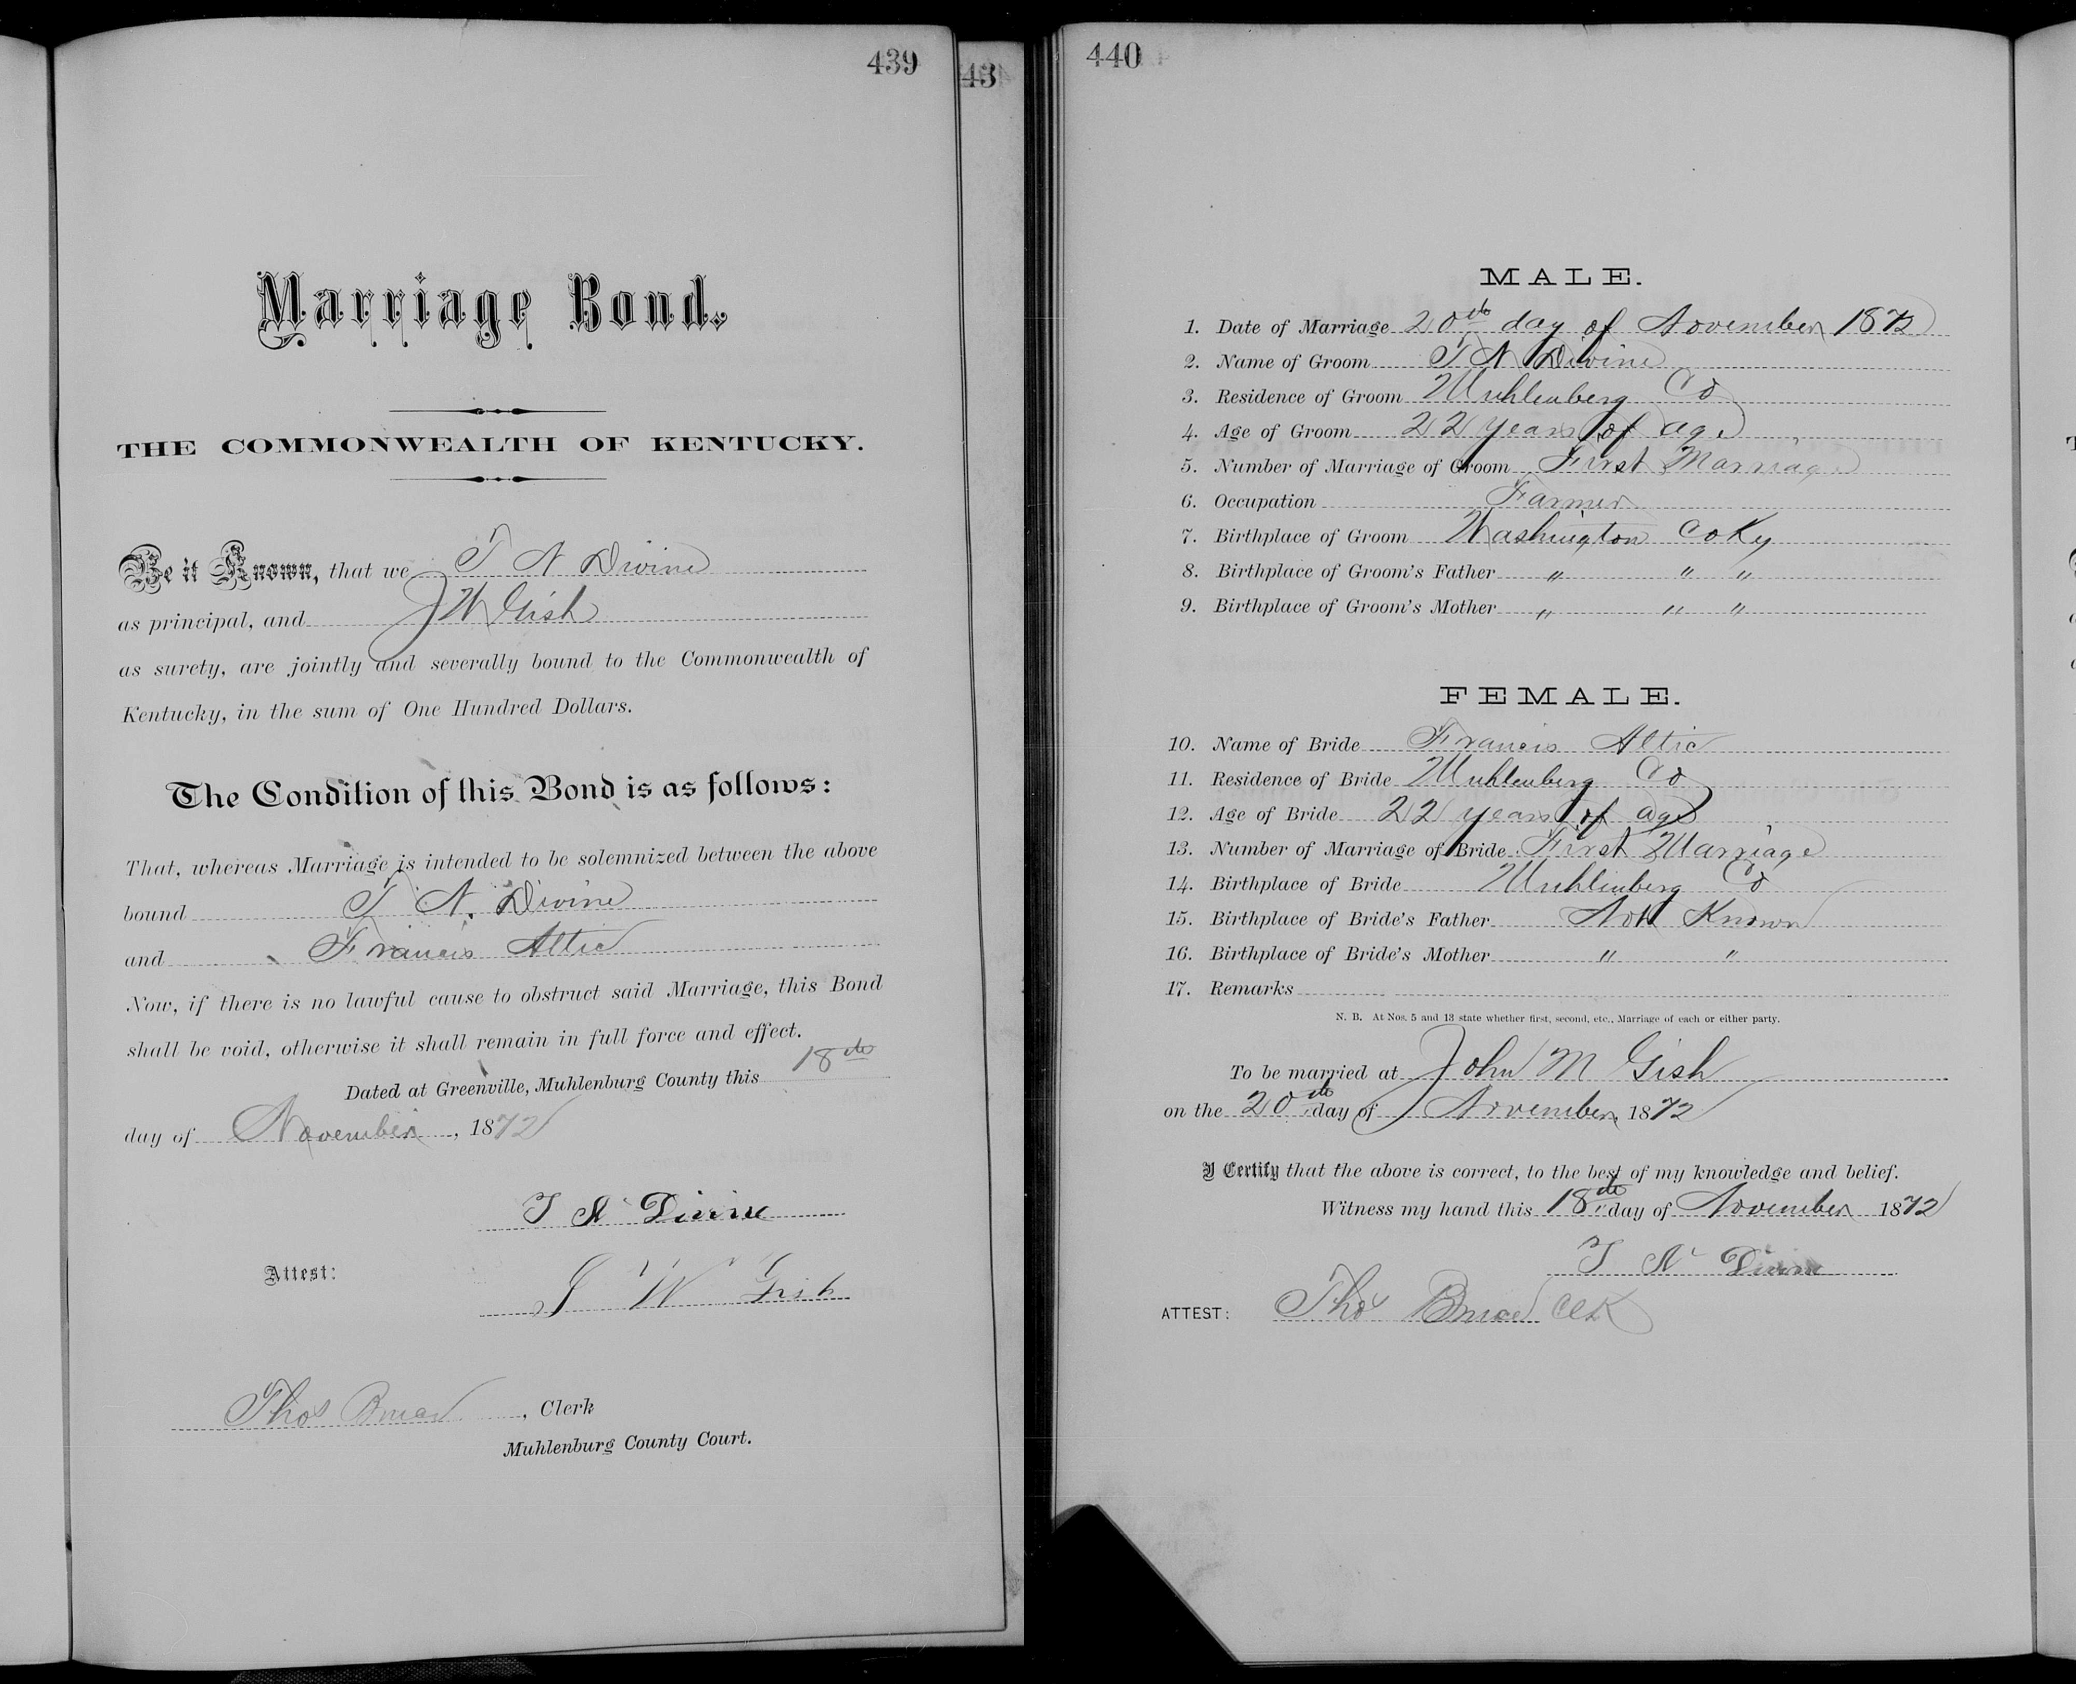 439
43
Marriage Bond.
THE COMMONWEALTH OF KENTUCKY.
Be it Known, that we T N Divine
as principal, and J W Gish
as surety, are jointly and severally bound to the Commonwealth of
Kentucky, in the sum of One Hundred Dollars.
The Condition of this Bond is as follows:
That, whereas Marriage is intended to be solemnized between the above
bound T. N. Divine
and Francis Altic
Now, if there is no lawful cause to obstruct said Marriage, this Bond
shall be void, otherwise it shall remain in full force and effect.
Dated at Greenville, Muhlenburg County this 18th
day of November, 1872
T N Divine
Attest:
J W Gish
Thos Bruce, Clerk
Muhlenburg County Court.
440
MALE.
1. Date of Marriage 20th day of November 1872
2. Name of Groom T N Divine
3. Residence of Groom Muhlenberg Co
4. Age of Groom 22 years of age
5. Number of Marriage of Groom First Marriage
6. Occupation Farmer
7. Birthplace of Groom Washington Co Ky
8. Birthplace of Groom's Father " " "
9. Birthplace of Groom's Mother " " "
FEMALE.
10. Name of Bride Francis Altic
11. Residence of Bride Muhlenberg Co
12. Age of Bride 22 years of age
13. Number of Marriage of Bride First Marriage
14. Birthplace of Bride Muhlenberg Co
15. Birthplace of Bride's Father Not Known
16. Birthplace of Bride's Mother " "
17. Remarks
N. B. At Nos. 5 and 13 state whether first, second, etc., Marriage of each or either party.
To be married at John M Gish
on the 20th day of November 1872
I Certify that the above is correct, to the best of my knowledge and belief.
Witness my hand this 18th day of November 1872
T N Divine
ATTEST: Thos Bruce Clk